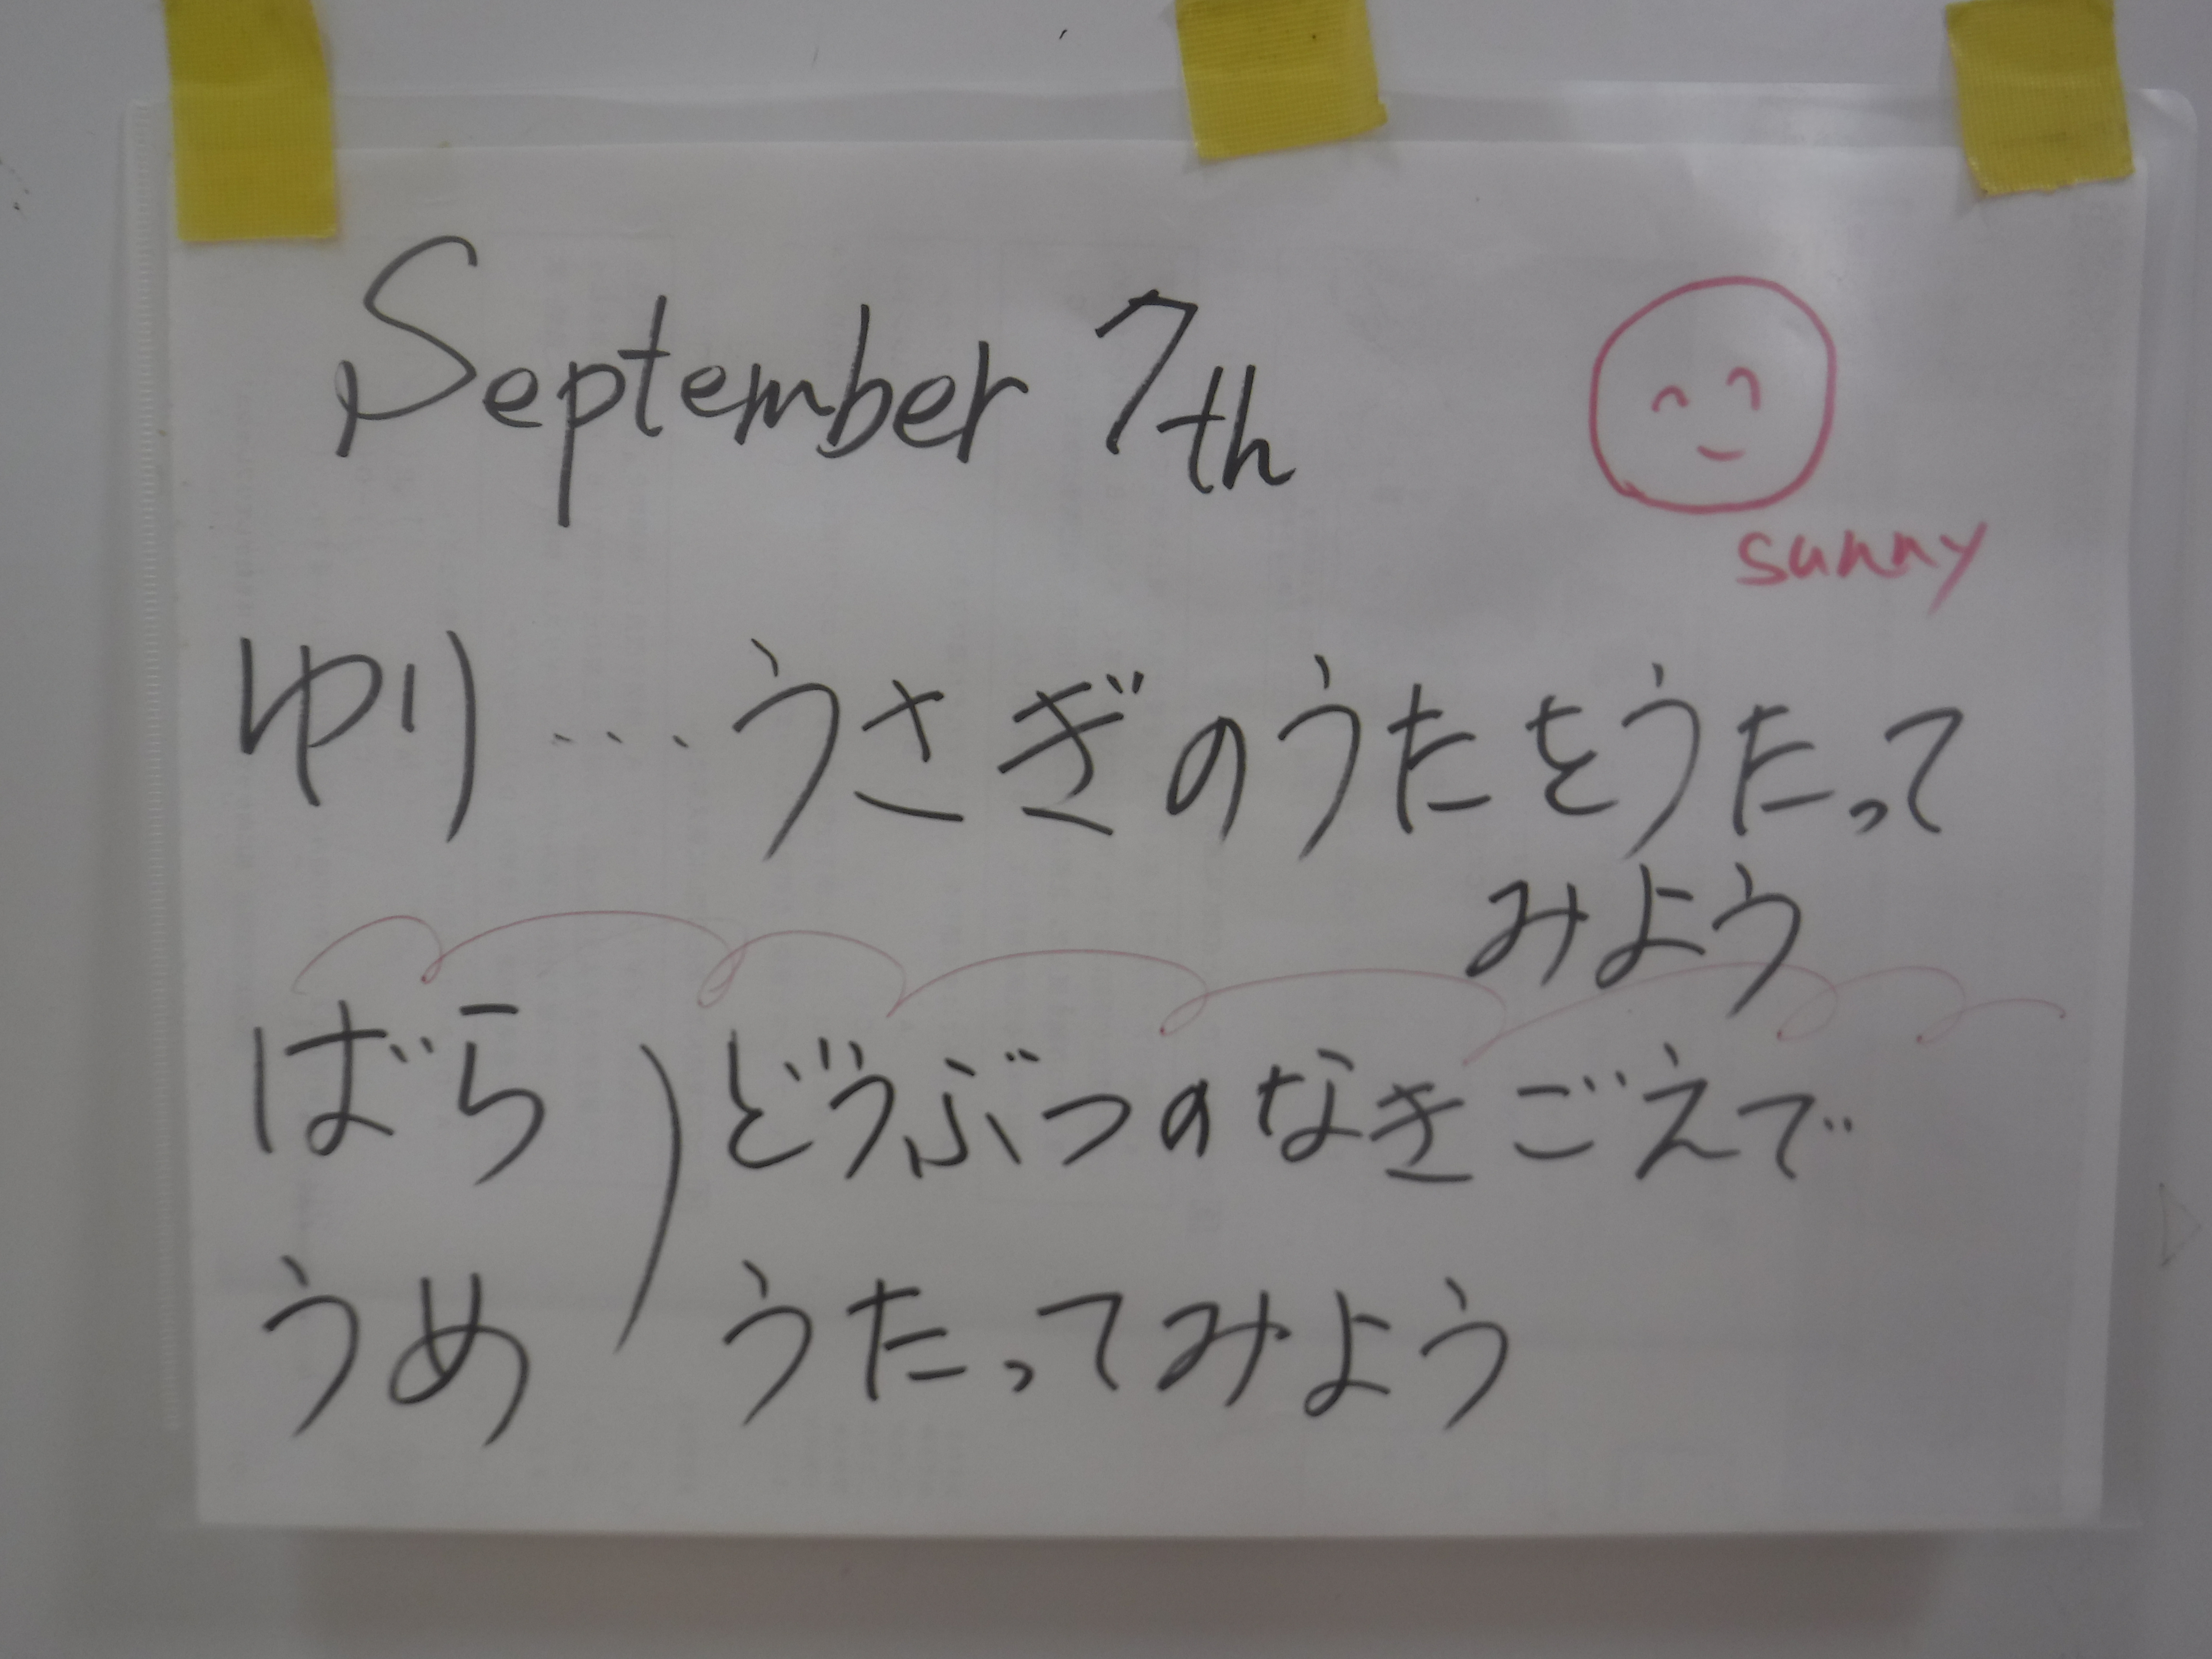 September 7th
sunny
ゆり…うさぎのうたをうたって
みよう
ばら)どうぶつのなきごえで
うめ うたってみよう